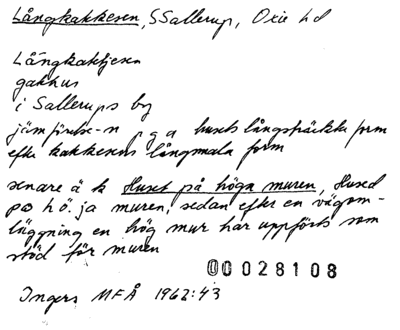 Långkakkesen, S Sallerup, Oxie hd
Långkakkjesen
gakhus
i Sallerups by
jämförelse-n, p g a husets långsträckta form
efter kakkesens långsmala form
senare ä k Huset på höga muren, Hused
på hö. ja muren, sedan efter en vägom-
läggning en hög mur har uppförts som
stöd för muren
00028108
Ingers MFÅ 1962:43